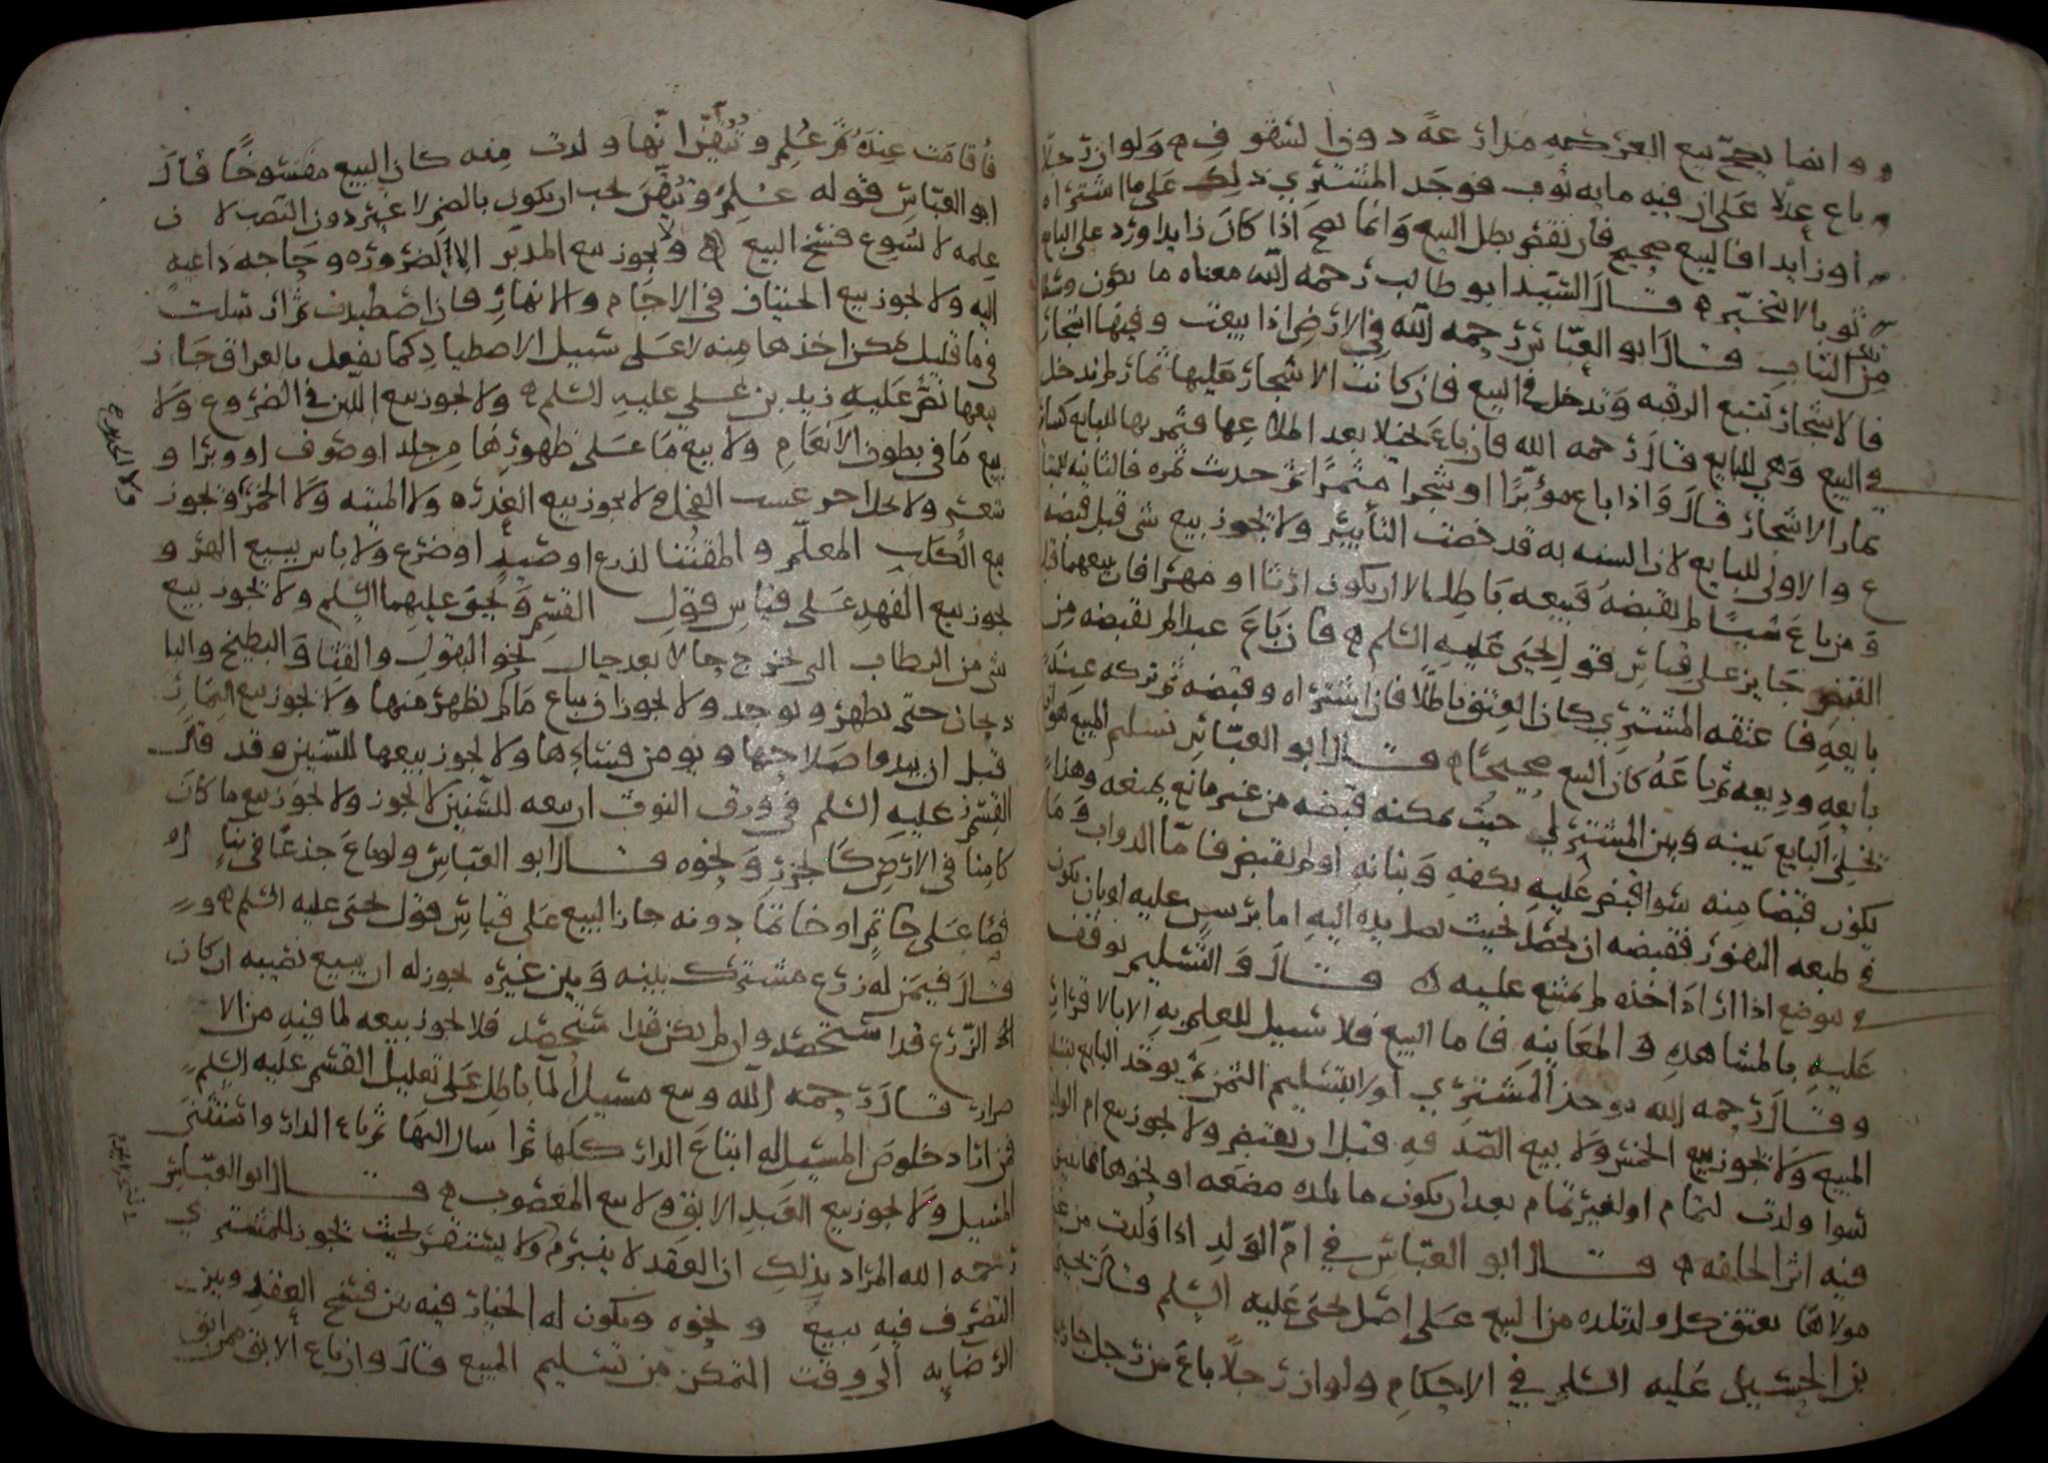 وانما يصح بيع العركهم مذارعة دون الشقوف ولو ان رجلا
باع عدلا على ان فيه مايه ثوب فوجد المشتري ذلك على ما اشتراه
او زايدا فالبيع صحيح فان نقص بطل البيع وانما يصح اذا كان زايدا ورد على البايع
ثوبا لا تخيره قال السيد ابو طالب رحمه الله معناه ما يكون وسطا
من الثياب قال ابو العباس رحمه الله في الارض اذا بيعت وفيها اشجار
فالاشجار تتبع الرقبه وتدخل في البيع فان كانت الاشجار عليها ثمار لم تدخل
في البيع وهي للبايع قال رحمه الله فان باع نخيلا بعد اطلاعها فثمرتها للبايع كسائر
ثمار الاشجار قال واذا باع مؤبرا او شجرا مثمرا ثم حدثت ثمره فالثانيه للمشتري
والاولى للبايع لان السنه به قد خصت التأبير ولا يجوز بيع شي قبل قبضه
ومن باع شيئا لم يقبضه فبيعه باطل الا ان يكون ارثا او مهرا فان بيعهما قبل
القبض جايز على قياس قول يحيى عليه السلم فان باع عبدا لم يقبضه من
بايعه فاعتقه المشتري كان العتق باطلا فان اشتراه وقبضه ثم تركه عند
بايعه وديعه ثم باعه كان البيع صحيحا قال ابو العباس تسليم المبيع هو ان
يخلي البايع بينه وبين المشتري حيث يمكنه قبضه من غير مانع يمنعه وهذا
يكون قبضا منه سوا قبض عليه بكفه وبنانه او لم يقبض فاما الدواب وما
في طبعه النفور فقبضه ان يحصل بحيث يصل يده اليه اما برسن عليه او بان يكون
في موضع اذا اراد اخذه لم يمتنع عليه قال والتسليم يوقف
عليه بالمشاهده والمعاينه فاما البيع فلا سبيل للعلم به الا بالاقرار
وقال رحمه الله يوخذ المشتري اولا بتسليم الثمن ثم يوخذ البايع بتسليم
المبيع ولا يجوز بيع الخمس ولا بيع الصدقه قبل ان يقبض ولا يجوز بيع ام الولد
سوا ولدت لتمام او لغير تمام بعد ان يكون ما تلده مضغه او نحوها مما يتبين
فيه اثر الخلقه قال ابو العباس في ام الولد اذا ولدت من غير
مولاها يعتق كل ولد تلده من البيع على اصل يحيى عليه السلم قال يحيى
بن الحسين عليه السلم في الاحكام ولو ان رجلا باع من رجل جاريه
فاقامت عنده ثم علم وتيقن انها ولدت منه كان البيع مفسوخا قال
ابو العباس قوله علم وتيقن يجب ان يكون بالضم لا غير دون النصب لان
علمه لا يسوغ فسخ البيع ولا يجوز بيع المدبر الا لضروره وحاجه داعيه
اليه ولا يجوز بيع الحيتان في الاجام والانهار فان اصطيدت ثم ارسلت
في ما قليل يمكن اخذها منه لا على سبيل الاصطياد كما يفعل بالعراق جاز
بيعها نص عليه زيد بن علي عليه السلم ولا يجوز بيع اللبن في الضروع ولا
بيع ما في بطون الانعام ولا بيع ما على ظهورها من جلد او صوف او وبر او
شعر ولا يحل اجر عسب الفحل ولا يجوز بيع العذره ولا الميته ولا الخمر ويجوز
بيع الكلب المعلم والمقتنا لزرع او صيد او ضرع ولا باس ببيع الهر و
يجوز بيع الفهد على قياس قول القسم ويحيى عليهما السلم ولا يجوز بيع
شي من الرطاب التي تخرج حالا بعد حال نحو البقول والقثا والبطيخ والبا
دنجان حتى يظهر ويوجد ولا يجوز ان يباع ما لم يظهر منها ولا يجوز بيع الثمار
قبل ان يبدوا صلاحها ويومن فسادها ولا يجوز بيعها للسنين وقد قال
القسم عليه السلم في ورق التوت ان بيعه للسنين لا يجوز ولا يجوز بيع ما كان
كامنا في الارض كالجزر ونحوه قال ابو العباس ولو باع جذعا في بناء او
فصا على خاتم او خاتما دونه جاز البيع على قياس قول يحيى عليه السلم و
قال فيمن له زرع مشترك بينه وبين غيره يجوز له ان يبيع نصيبه ان كان
الزرع قد استحصد وان لم يكن قد استحصد فلا يجوز بيعه لما فيه من الا
ضرار قال رحمه الله وبيع مسيل الما باطل على تعليل القسم عليه السلم
فمن اراد خلوص المسيل له ابتاع الدار كلها ثم اسال اليها ثم باع الدار واستثنى
المسيل ولا يجوز بيع العبد الابق ولا بيع المغصوب قال ابو العباس
رحمه الله المراد بذلك ان العقد لا ينبرم ولا يستقر بحيث يجوز للمشتري
التصرف فيه ببيع ونحوه ويكون له الخيار فيه بين فسخ العقد وبين
الرضا به الى وقت التمكن من تسليم المبيع قال وان باع الابق ممن ابق